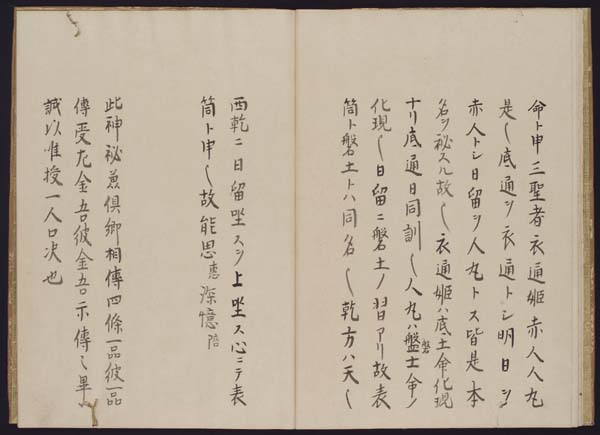 命ト申三聖者衣通姫赤人人丸
是〱底通ヲ衣通トシ明日ヲ
赤人トシ日留ヲ人丸トス皆是本
名ヲ秘スル故〱衣通姫ハ底土命化現
ナリ底通日同訓〱人丸ハ盤土命ノ
化現〱日留ニ磐土ノ習アリ故表
筒ト磐土トハ同名〱乾方ハ天〱
西乾ニ日留坐スヲ上坐ス心ニテ表
筒ト申〱故能思惠深憶
此神祕兼倶卿相傳四條一品彼一品
傳受尤金吾彼金吾示傳之畢
誠以唯授一人口决也